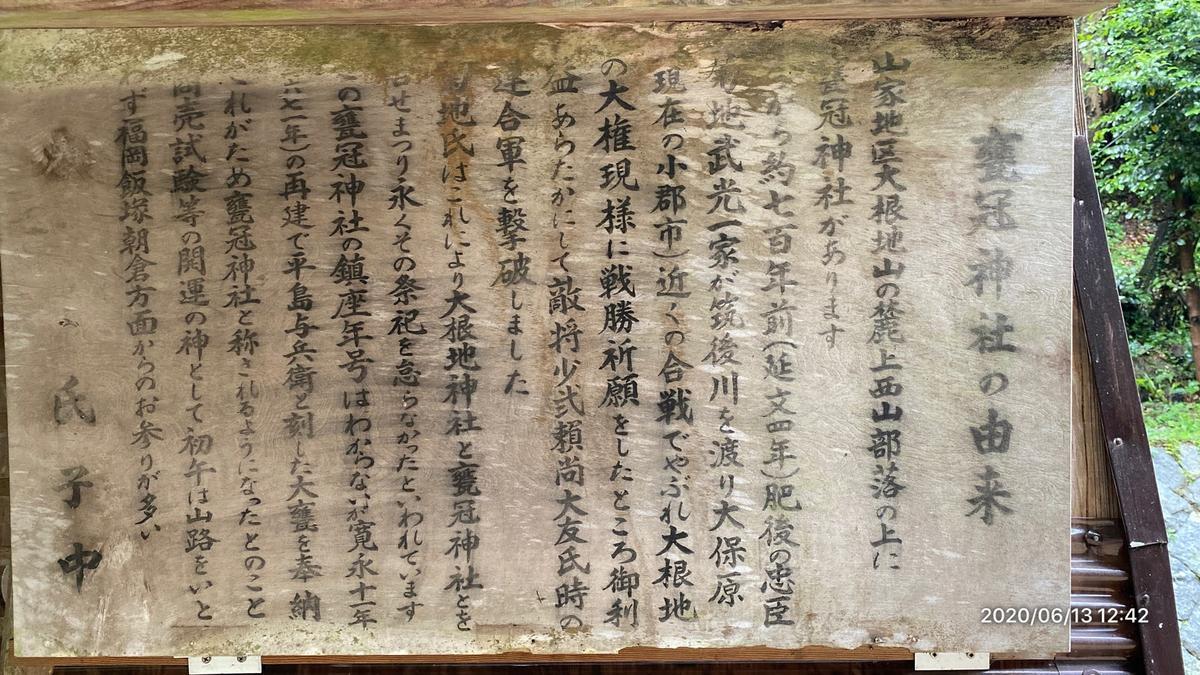 甕冠神社の由来
山家地区大根地山の麓上西山部落の上に
甕冠神社があります
から約七百年前(延文四年)肥後の忠臣
菊地武光一家が筑後川を渡り大保原
現在の小郡市)近くの合戦でやぶれ大根地
の大権現様に戦勝祈願をしたところ御利
益あらたかにして敵将少弐頼尚大友氏時の
連合軍を撃破しました
地氏はこれにより大根地神社と甕冠神社とを
せまつり永くその祭祀を怠らなかったといわれています
の甕冠神社の鎮座年号はわからないが寛永十一年
六七一年)の再建で平島与兵衛と刻した大甕を奉納
これがため甕冠神社と称されるようになったとのこと
商売試験等の開運の神として初午は山路をいと
わず福岡飯塚朝倉方面からのお参りが多い
氏子中
2020/06/13 12:42